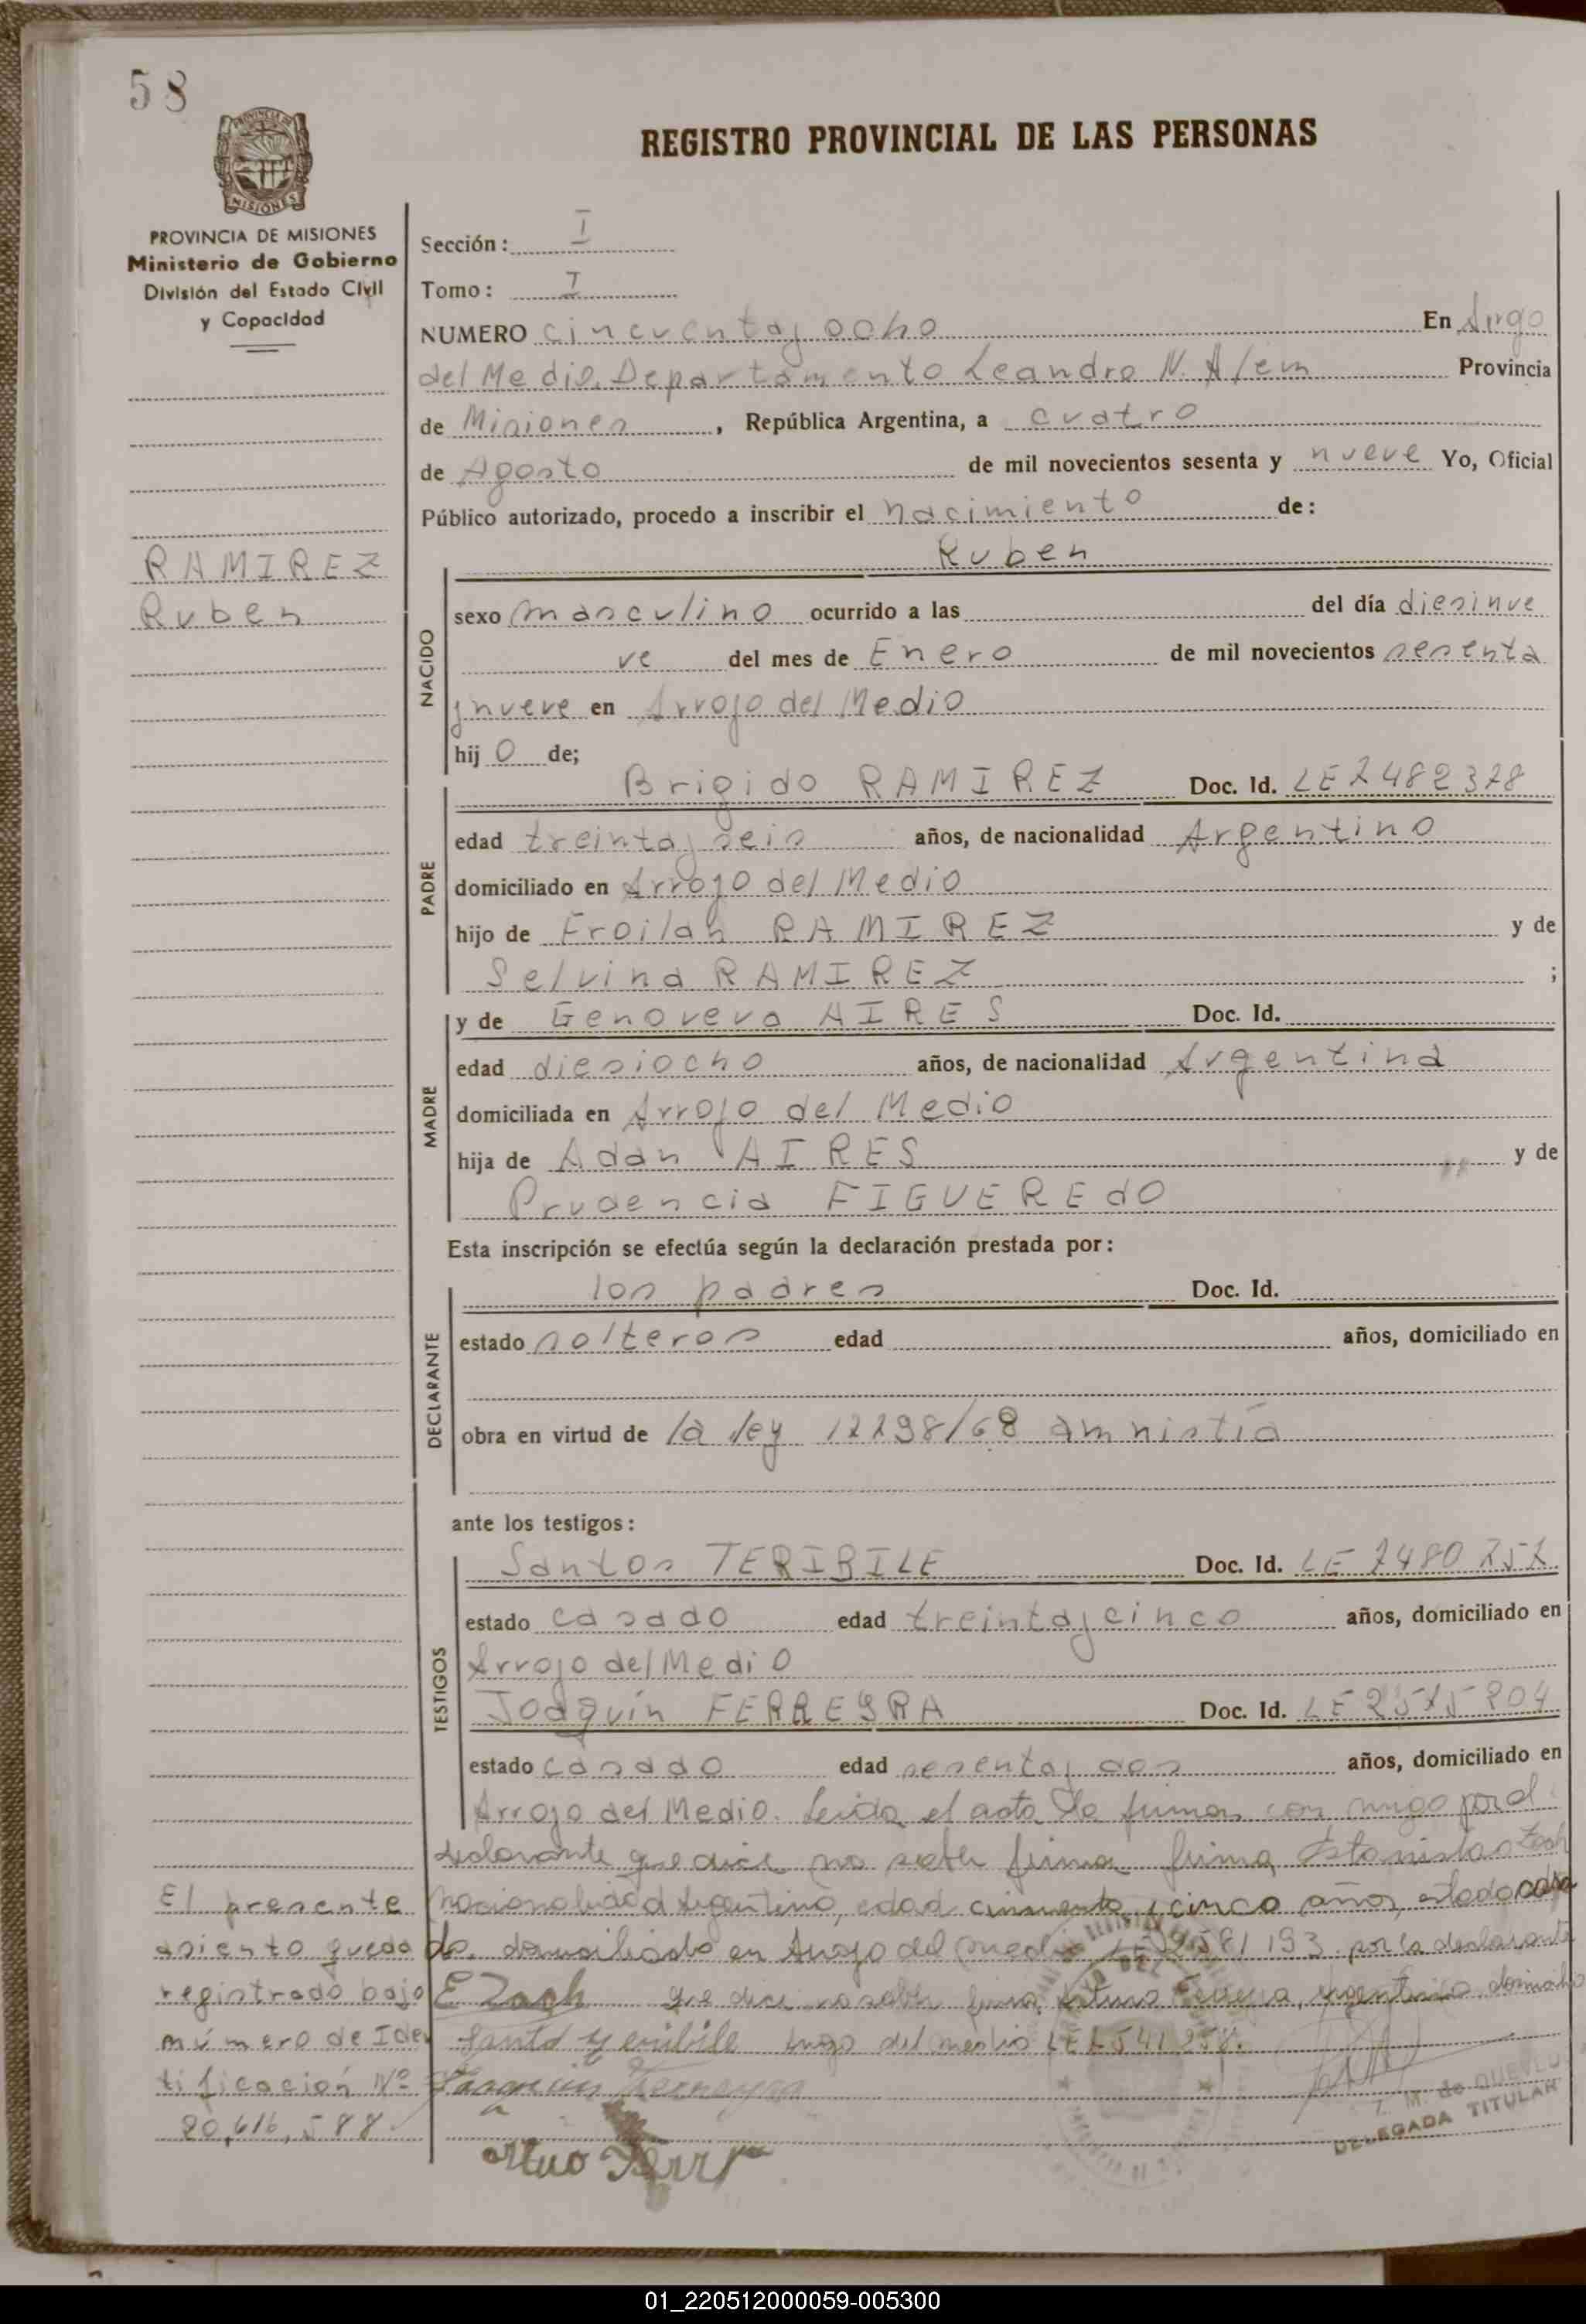 58
PROVINCIA DE MISIONES
REGISTRO PROVINCIAL DE LAS PERSONAS
PROVINCIA DE MISIONES
Ministerio de Gobierno
División del Estado Civil
y Capacidad
RAMIREZ
Ruben
Sección: I
Tomo: I
NUMERO cincuentayocho En Arroyo
del Medio, Departamento Leandro N. Alem Provincia
de Misiones, República Argentina, a cuatro
de Agosto de mil novecientos sesenta y nueve Yo, Oficial
Público autorizado, procedo a inscribir el nacimiento de:
Ruben
NACIDO
sexo masculino ocurrido a las del día diesinue
ve del mes de Enero de mil novecientos sesenta
ynueve en Arroyo del Medio
hijo de;
PADRE
Brigido RAMIREZ Doc. Id. LE 7482378
edad treintayseis años, de nacionalidad Argentino
domiciliado en Arroyo del Medio
hijo de Froilan RAMIREZ y de
Selvina RAMIREZ ;
MADRE
y de Genoveva AIRES Doc. Id.
edad diesiocho años, de nacionalidad Argentina
domiciliada en Arroyo del Medio
hija de Adan AIRES y de
Prudencia FIGUEREdO
Esta inscripción se efectúa según la declaración prestada por:
DECLARANTE
los padres Doc. Id.
estado solteros edad años, domiciliado en
obra en virtud de la ley 17798/68 amnistía
ante los testigos:
TESTIGOS
Santos TERIBILE Doc. Id. LE 7480252
estado casado edad treintaycinco años, domiciliado en
Arroyo del Medio
Joaquín FERREYRA Doc. Id. LE
estado casado edad sesentaydos años, domiciliado en
Arroyo del Medio. Leida el acta la firman con migo por el
declarante que dice no saber firmar firma Estanislao Zach
Nacionalidad Argentino, edad cincuenta y cinco años, estado casa
do, domiciliado en Arroyo del Medio por la declarante
E Zach que dice no saber firmar Arturo Ferreira, argentino, domicilio
Arroyo del medio
El presente
asiento queda
registrado bajo
número de Iden
tificación Nº
20,616,588
T. M. de QUEVEDO
DELEGADA TITULAR
01_220512000059-005300